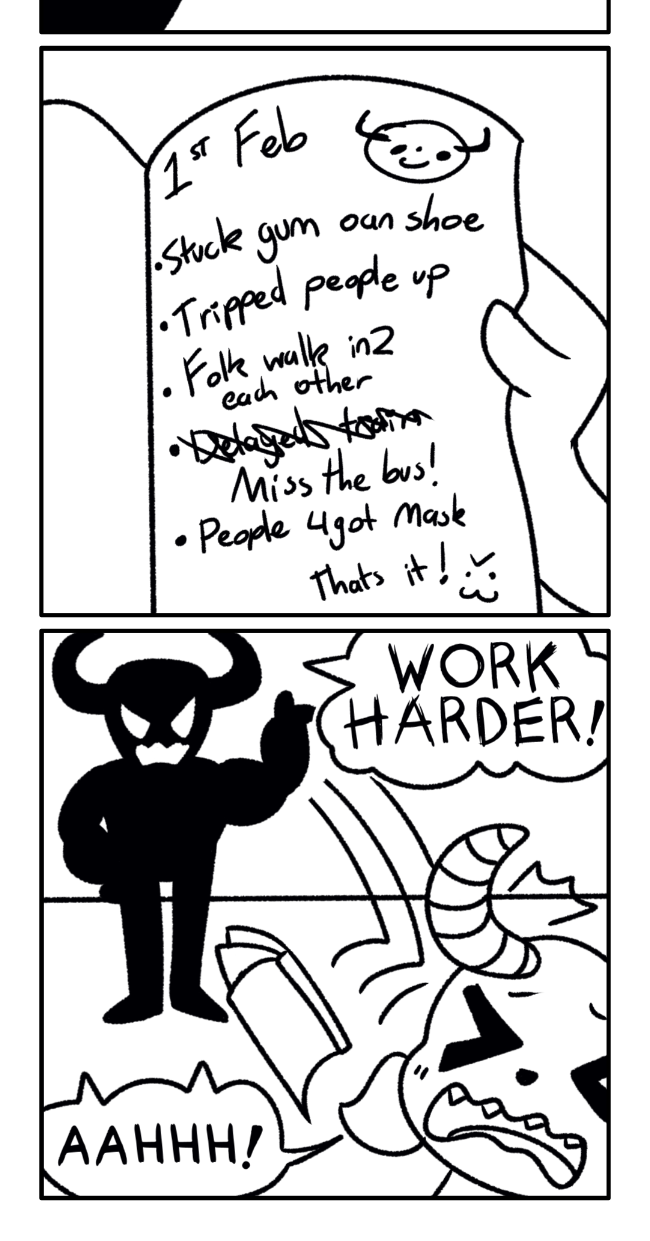 1ST Feb
• Stuck gum oan shoe
• Tripped people up
• Folk walk in2
each other
• Delayed train
Miss the bus!
• People 4got Mask
Thats it!
WORK
HARDER!
AAHHH!